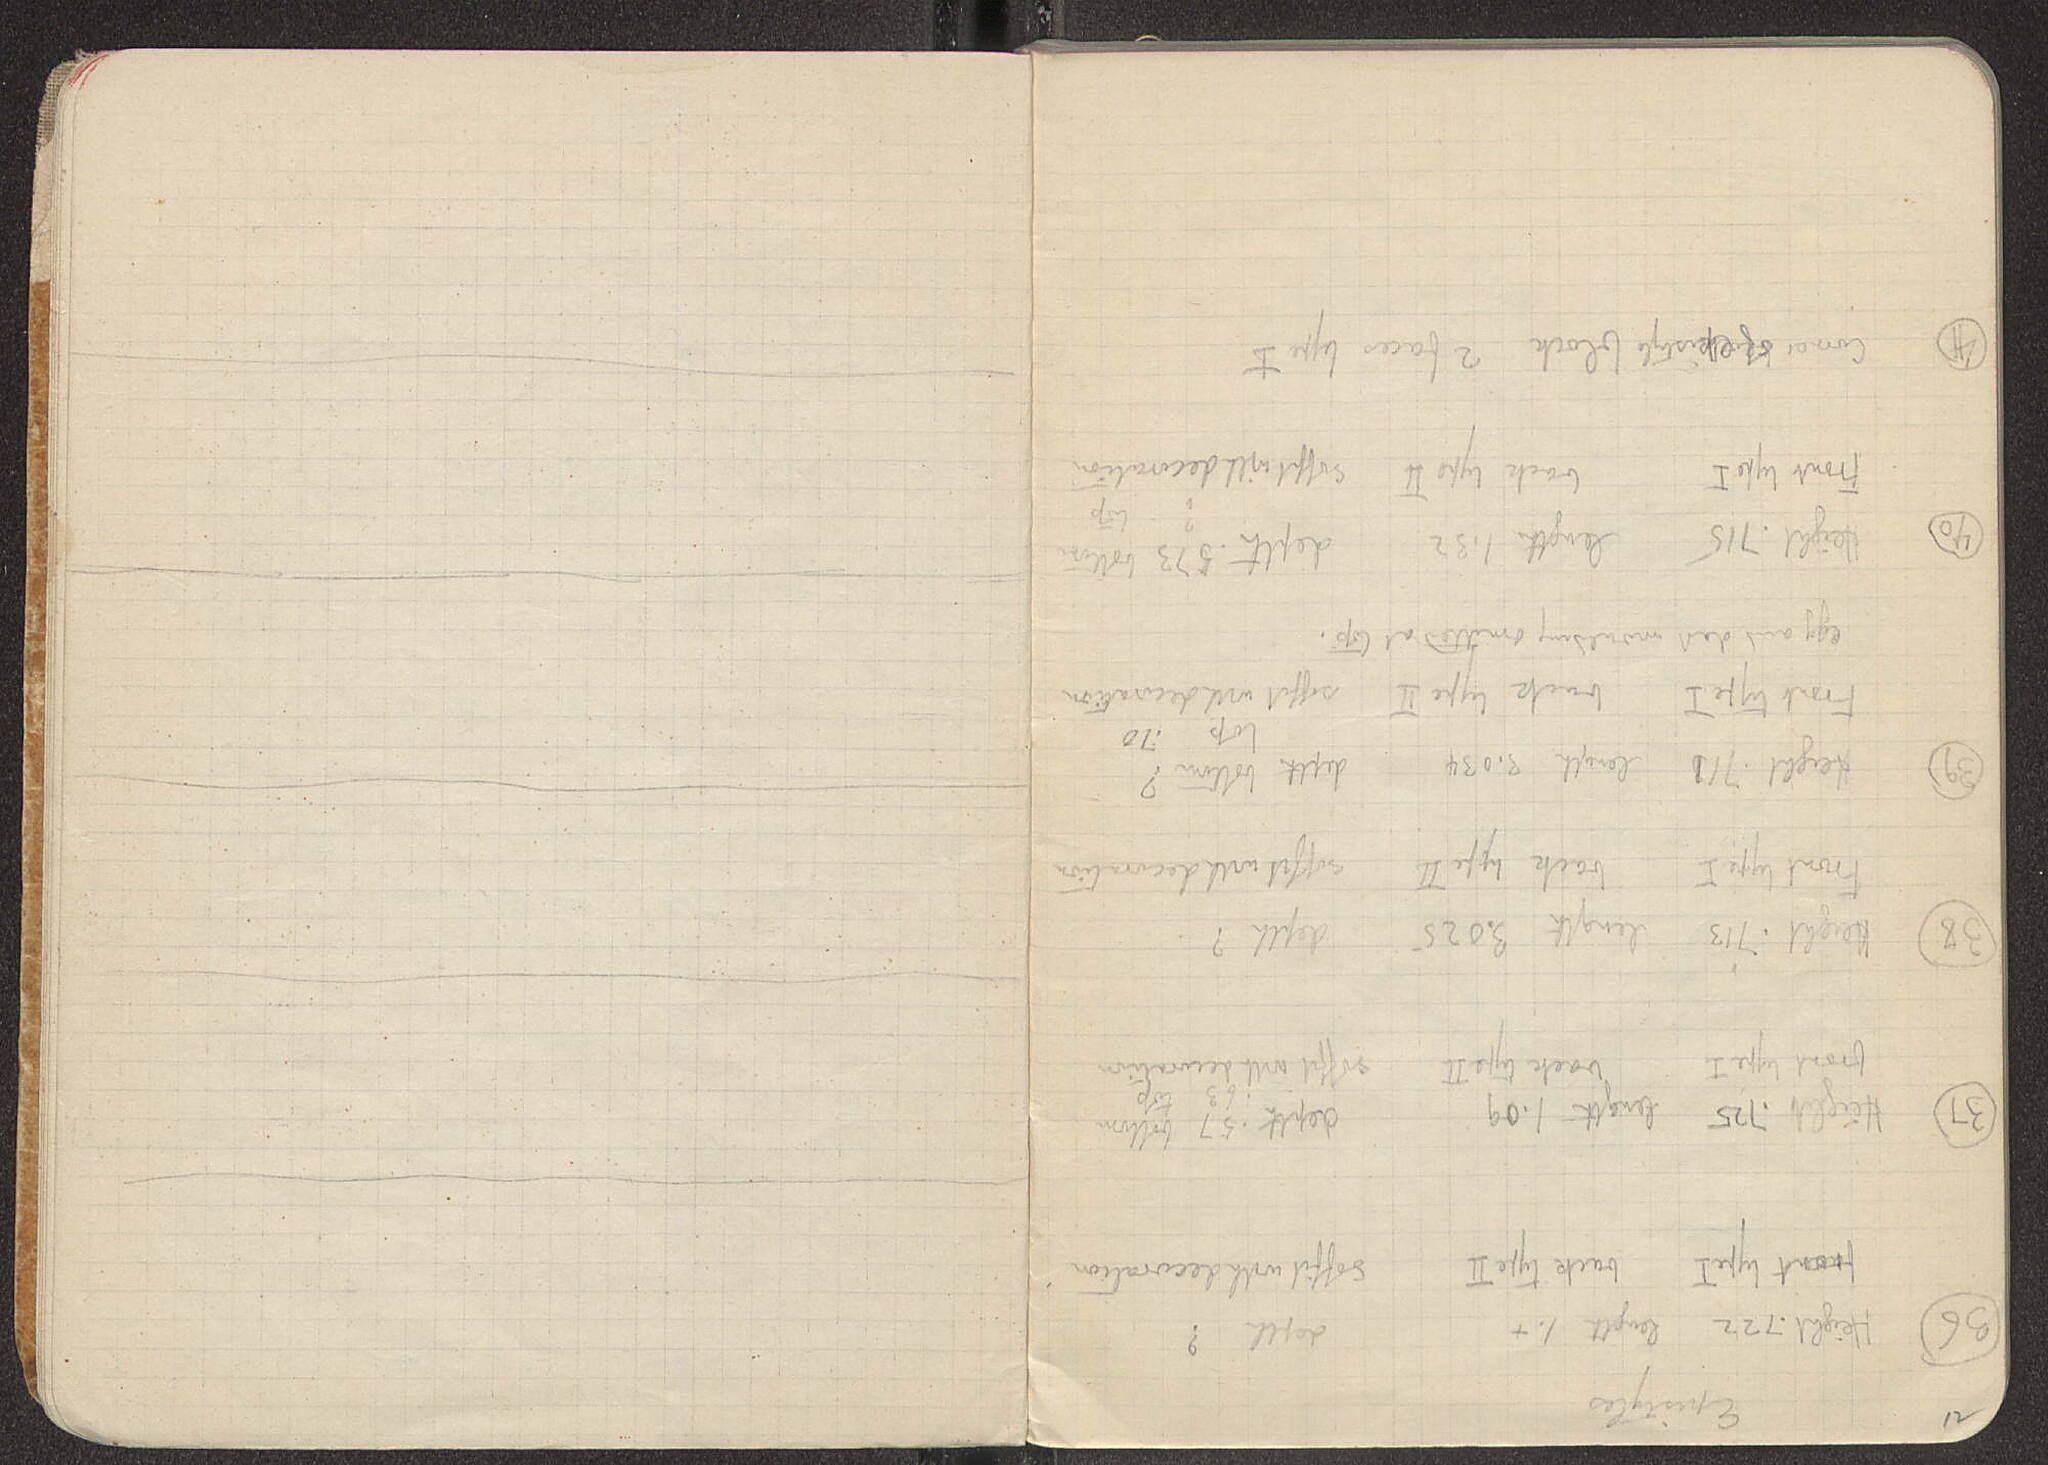 12
Epistyles
36 Height .722 length 1.+ depth ?
front type I back type II soffit with decoration
37 Height .725 length 1.09 depth .57 bottom
.63 top
front type I back type II soffit with decoration
38 Height .713 length 3.025 depth ?
Front type I back type II soffit with decoration
39 Height .711 length 3.034 depth bottom ?
top .70
Front type I back type II soffit with decoration
egg and dart moulding omitted at top.
40 Height .715 length 1.32 depth .573 bottom
? top
Front type I back type II soffit with decoration
41 Corner epistyle block 2 faces type I